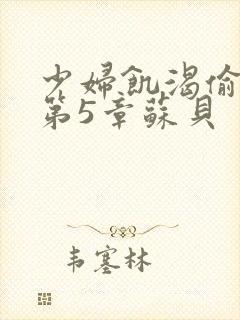 少婦飢渴偷
第5章蘇貝
韦塞林